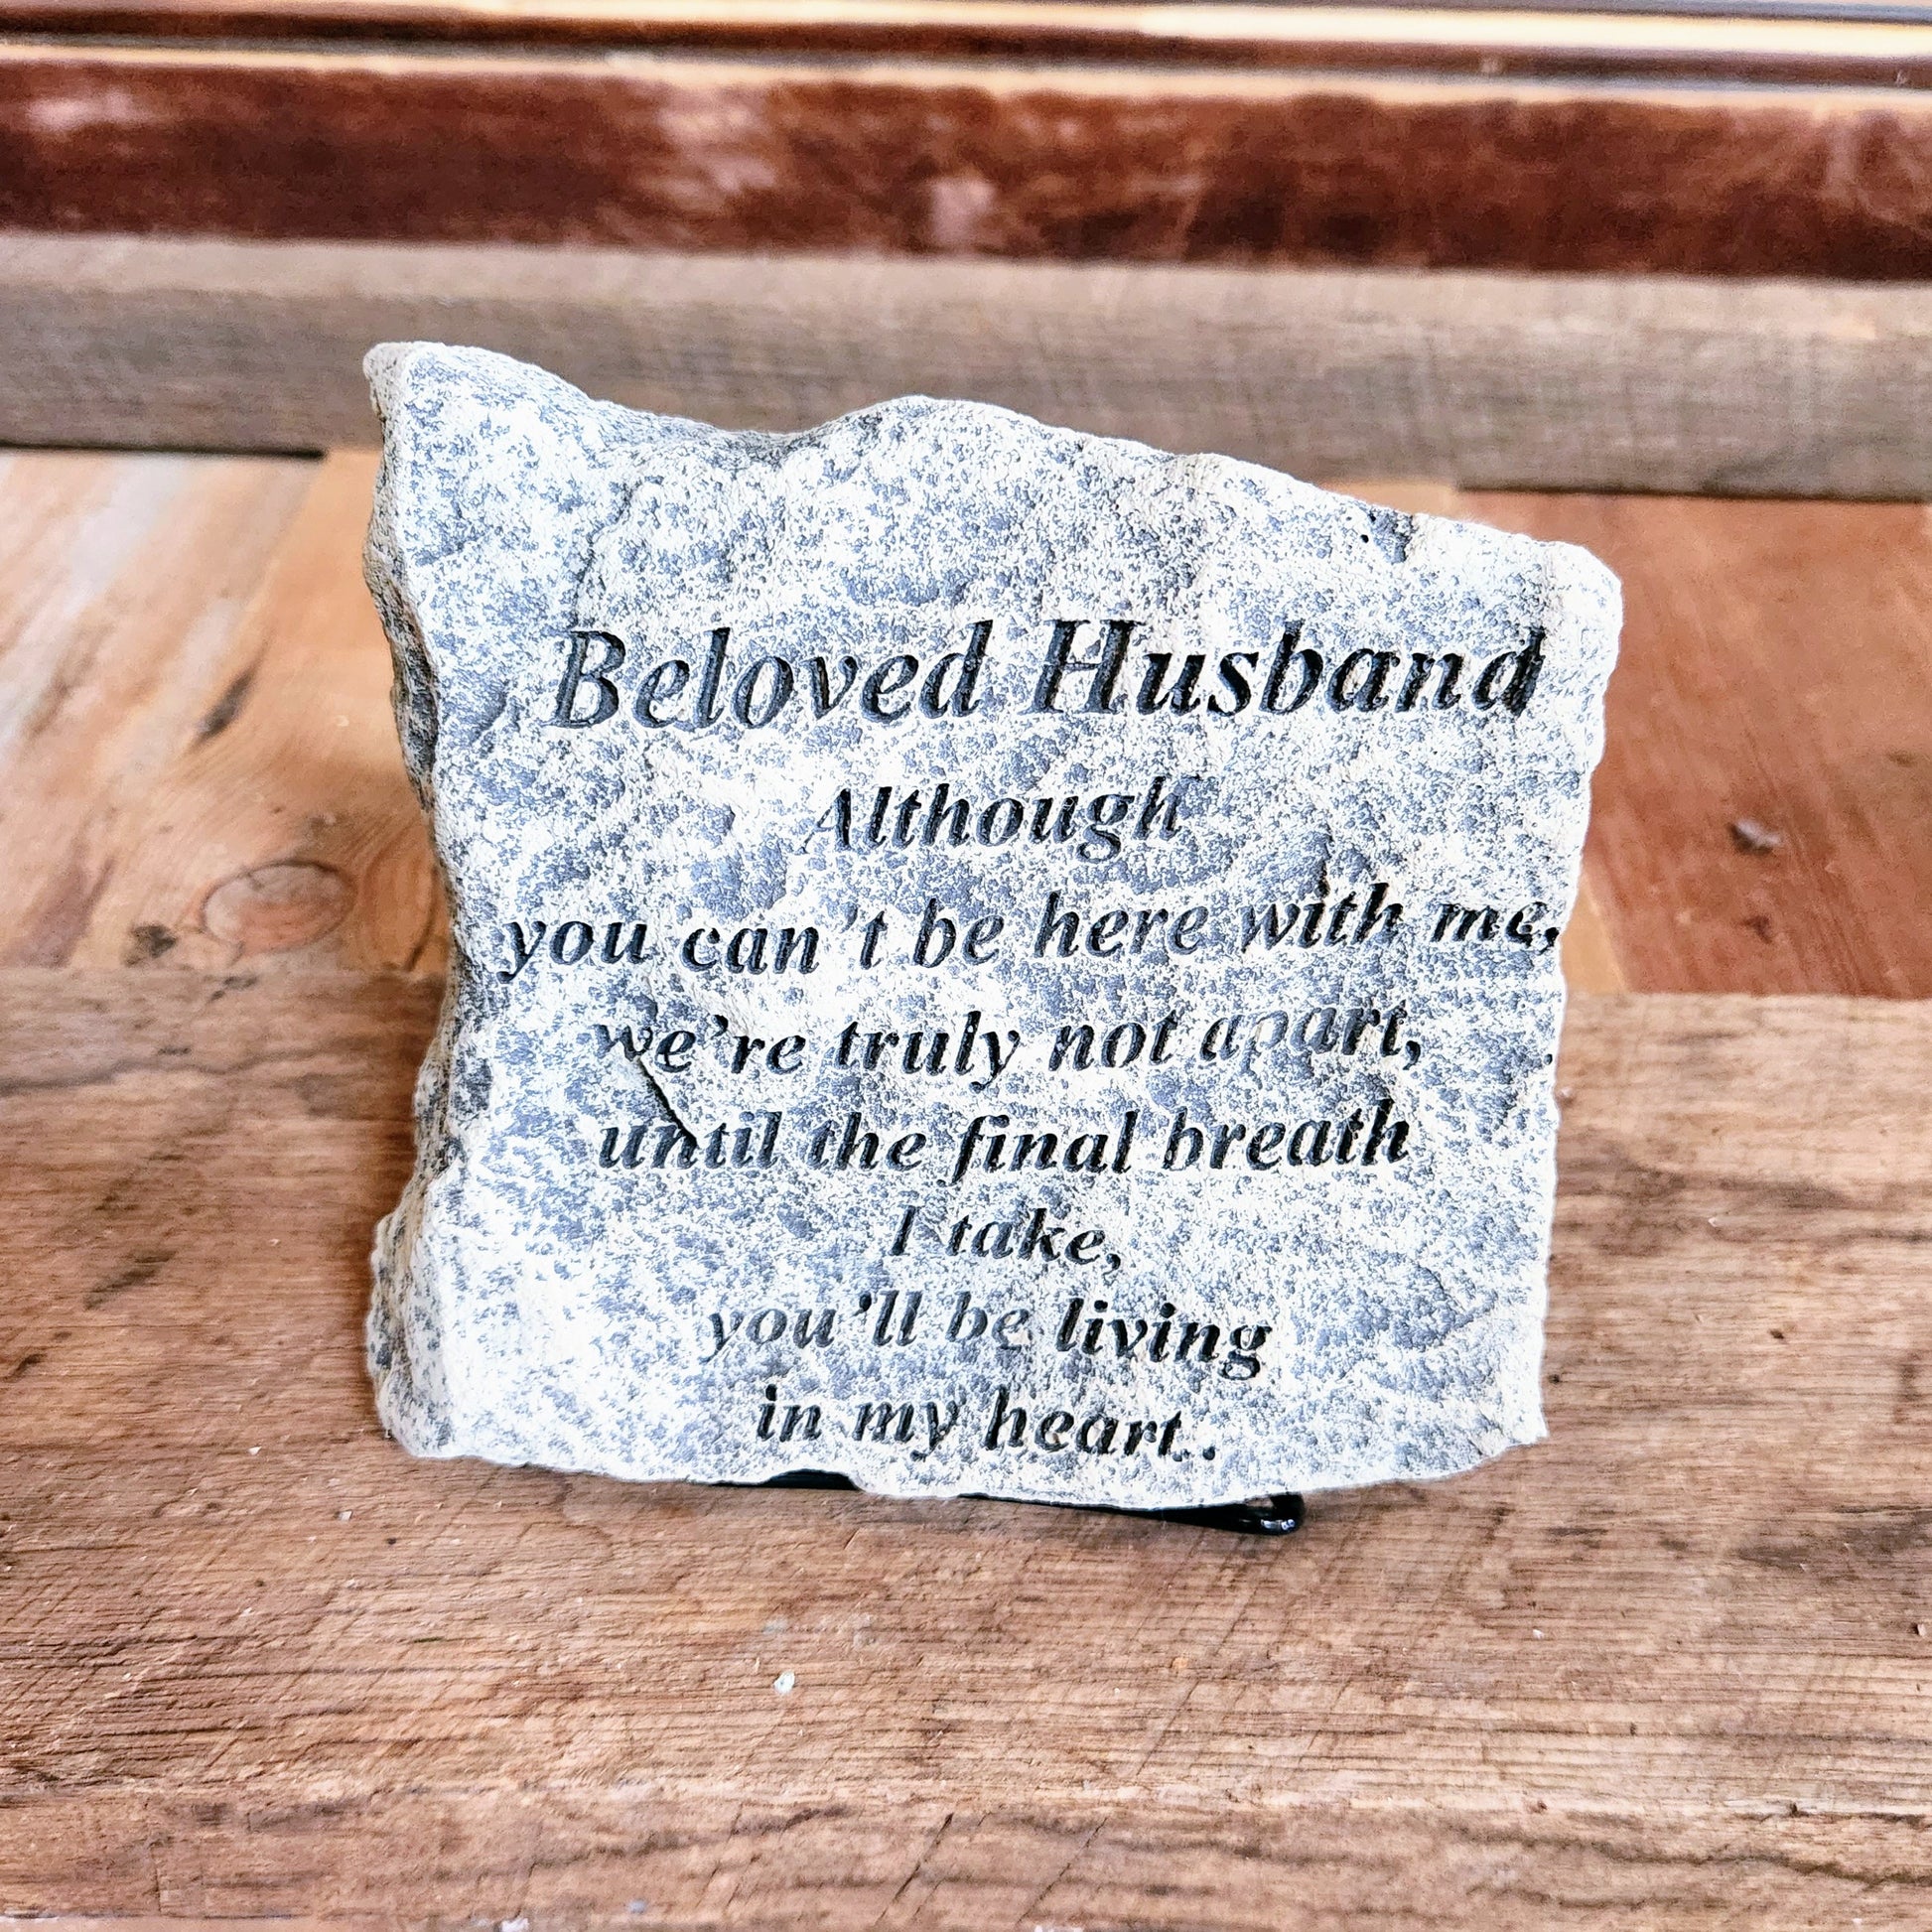 Beloved Husband
Although
you can't be here with me,
we're truly not apart,
until the final breath
I take,
you'll be living
in my heart..